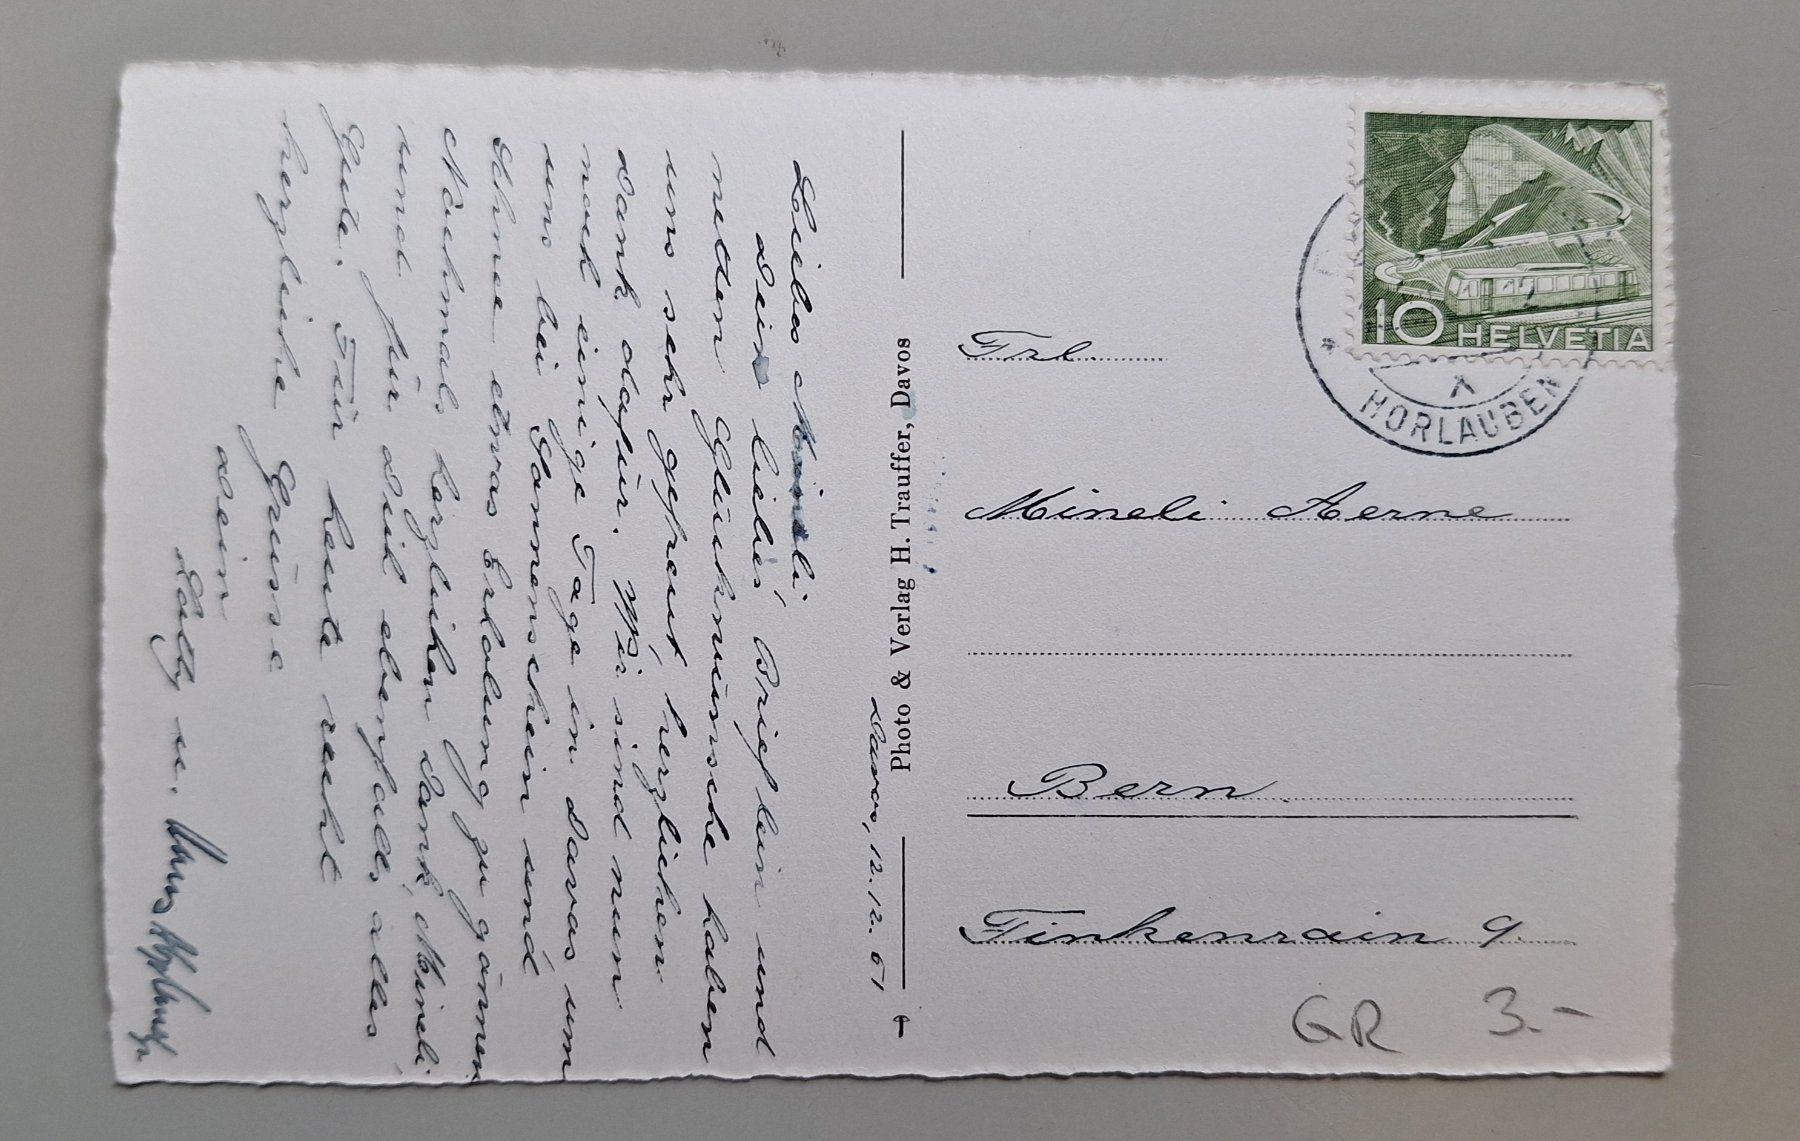 Davos, 12.12.51
Liebes Mineli
Dein liebes Brieflein und
netten Glückwünsche haben
uns sehr gefreut, herzlichen
Dank dafür. Wir sind nun
noch einige Tage in Davos um
uns bei Sonnenschein und
Schnee etwas Erholung zu gönnen.
Nochmals herzlichen Dank, Mineli
und für Dich ebenfalls alles
Gute. Für heute recht
herzliche Grüsse
Dein
u.
Photo & Verlag H. Trauffer, Davos
10 HELVETIA
HORLAUBEN
Frl.
Mineli Aerne
Bern
Finkenrain 9.
GR 3.-